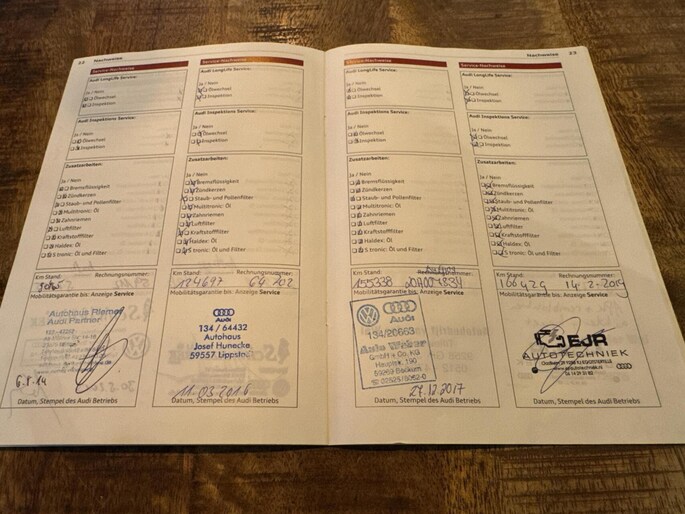 22 Nachweise
Service-Nachweise
Audi LongLife Service:
Ja / Nein
Ölwechsel
Inspektion
Audi Inspektions Service:
Ja / Nein
Ölwechsel
Inspektion
Zusatzarbeiten:
Ja / Nein
Bremsflüssigkeit
Zündkerzen
Staub- und Pollenfilter
Multitronic: Öl
Zahnriemen
Luftfilter
Kraftstofffilter
Haldex: Öl
S tronic: Öl und Filter
Km Stand: Rechnungsnummer:
Mobilitätsgarantie bis: Anzeige Service
Autohaus Riemer
Audi Partner
6.8.14
Datum, Stempel des Audi Betriebs
Service-Nachweise
Audi LongLife Service:
Ja / Nein
Ölwechsel
Inspektion
Audi Inspektions Service:
Ja / Nein
Ölwechsel
Inspektion
Zusatzarbeiten:
Ja / Nein
Bremsflüssigkeit
Zündkerzen
Staub- und Pollenfilter
Multitronic: Öl
Zahnriemen
Luftfilter
Kraftstofffilter
Haldex: Öl
S tronic: Öl und Filter
Km Stand: Rechnungsnummer:
134697 64 202
Mobilitätsgarantie bis: Anzeige Service
Audi
134 / 64432
Autohaus
Josef Hunecke
59557 Lippstadt
11-03-2016
Datum, Stempel des Audi Betriebs
Nachweise 23
Service-Nachweise
Audi LongLife Service:
Ja / Nein
Ölwechsel
Inspektion
Audi Inspektions Service:
Ja / Nein
Ölwechsel
Inspektion
Zusatzarbeiten:
Ja / Nein
Bremsflüssigkeit
Zündkerzen
Staub- und Pollenfilter
Multitronic: Öl
Zahnriemen
Luftfilter
Kraftstofffilter
Haldex: Öl
S tronic: Öl und Filter
Km Stand:
155338
Mobilitätsgarantie bis: Anzeige Service
Audi
134/20663
GmbH & Co. KG
Hauptstr. 190
27.12.2017
Datum, Stempel des Audi Betriebs
Service-Nachweise
Audi LongLife Service:
Ja / Nein
Ölwechsel
Inspektion
Audi Inspektions Service:
Ja / Nein
Ölwechsel
Inspektion
Zusatzarbeiten:
Ja / Nein
Bremsflüssigkeit
Zündkerzen
Staub- und Pollenfilter
Multitronic: Öl
Zahnriemen
Luftfilter
Kraftstofffilter
Haldex: Öl
S tronic: Öl und Filter
Km Stand: Rechnungsnummer:
166429 14-2-2019
Mobilitätsgarantie bis: Anzeige Service
EJR
AUTOTECHNIEK
Datum, Stempel des Audi Betriebs